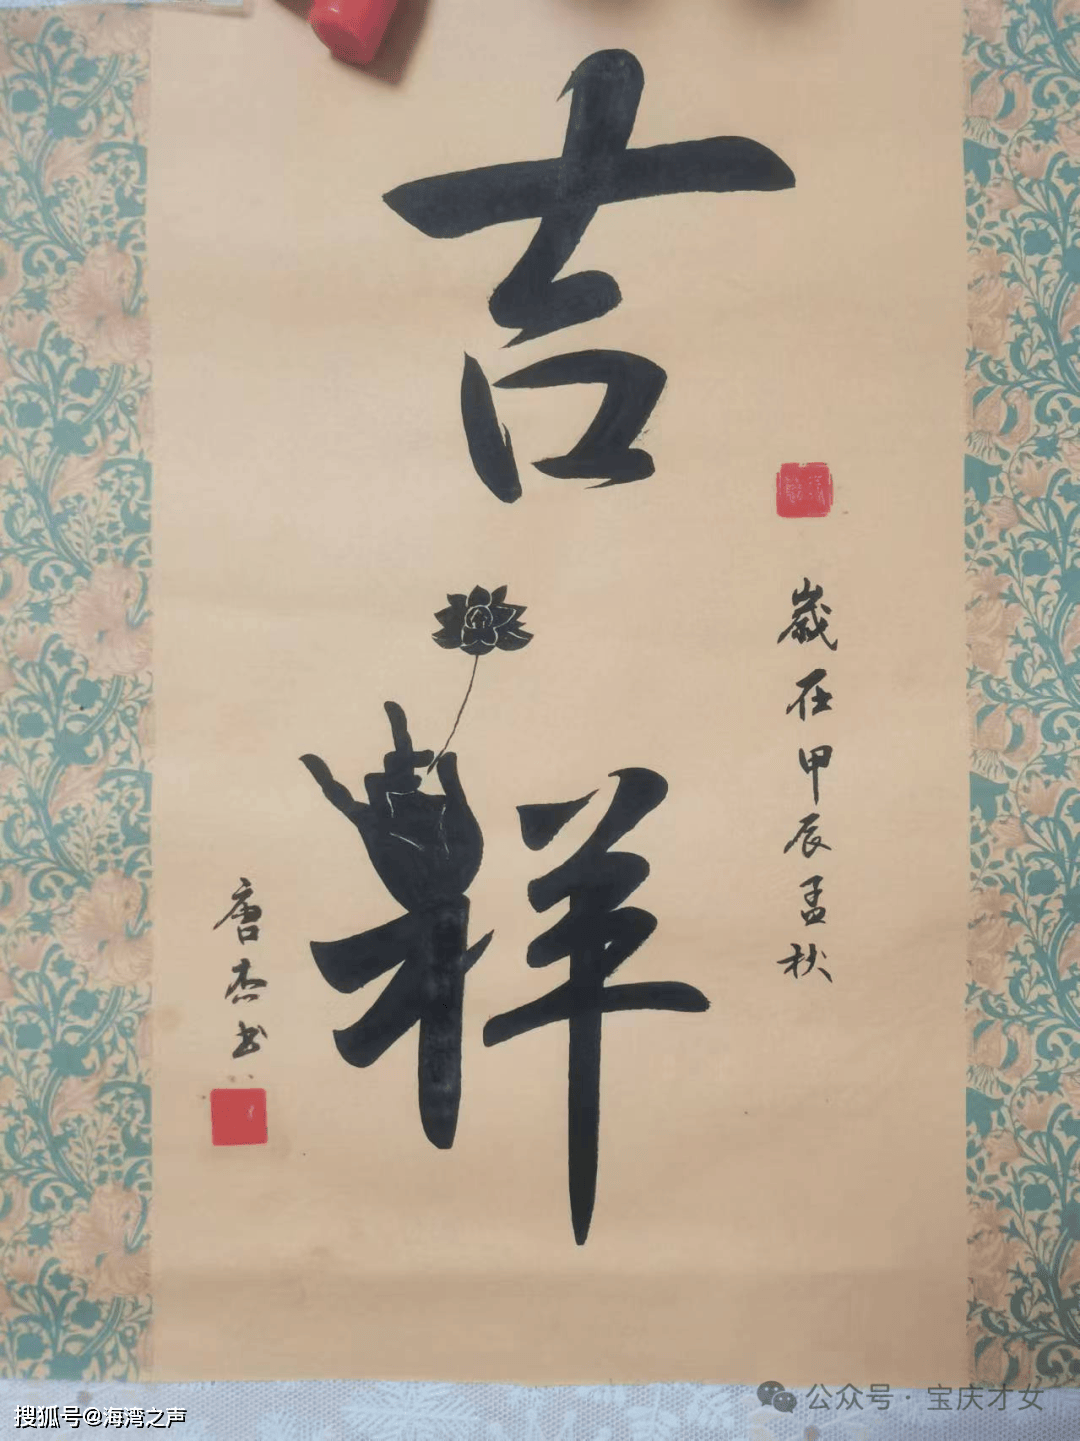 吉祥
歲在甲辰孟秋
唐杰书
搜狐号@海湾之声
公众号·宝庆才女